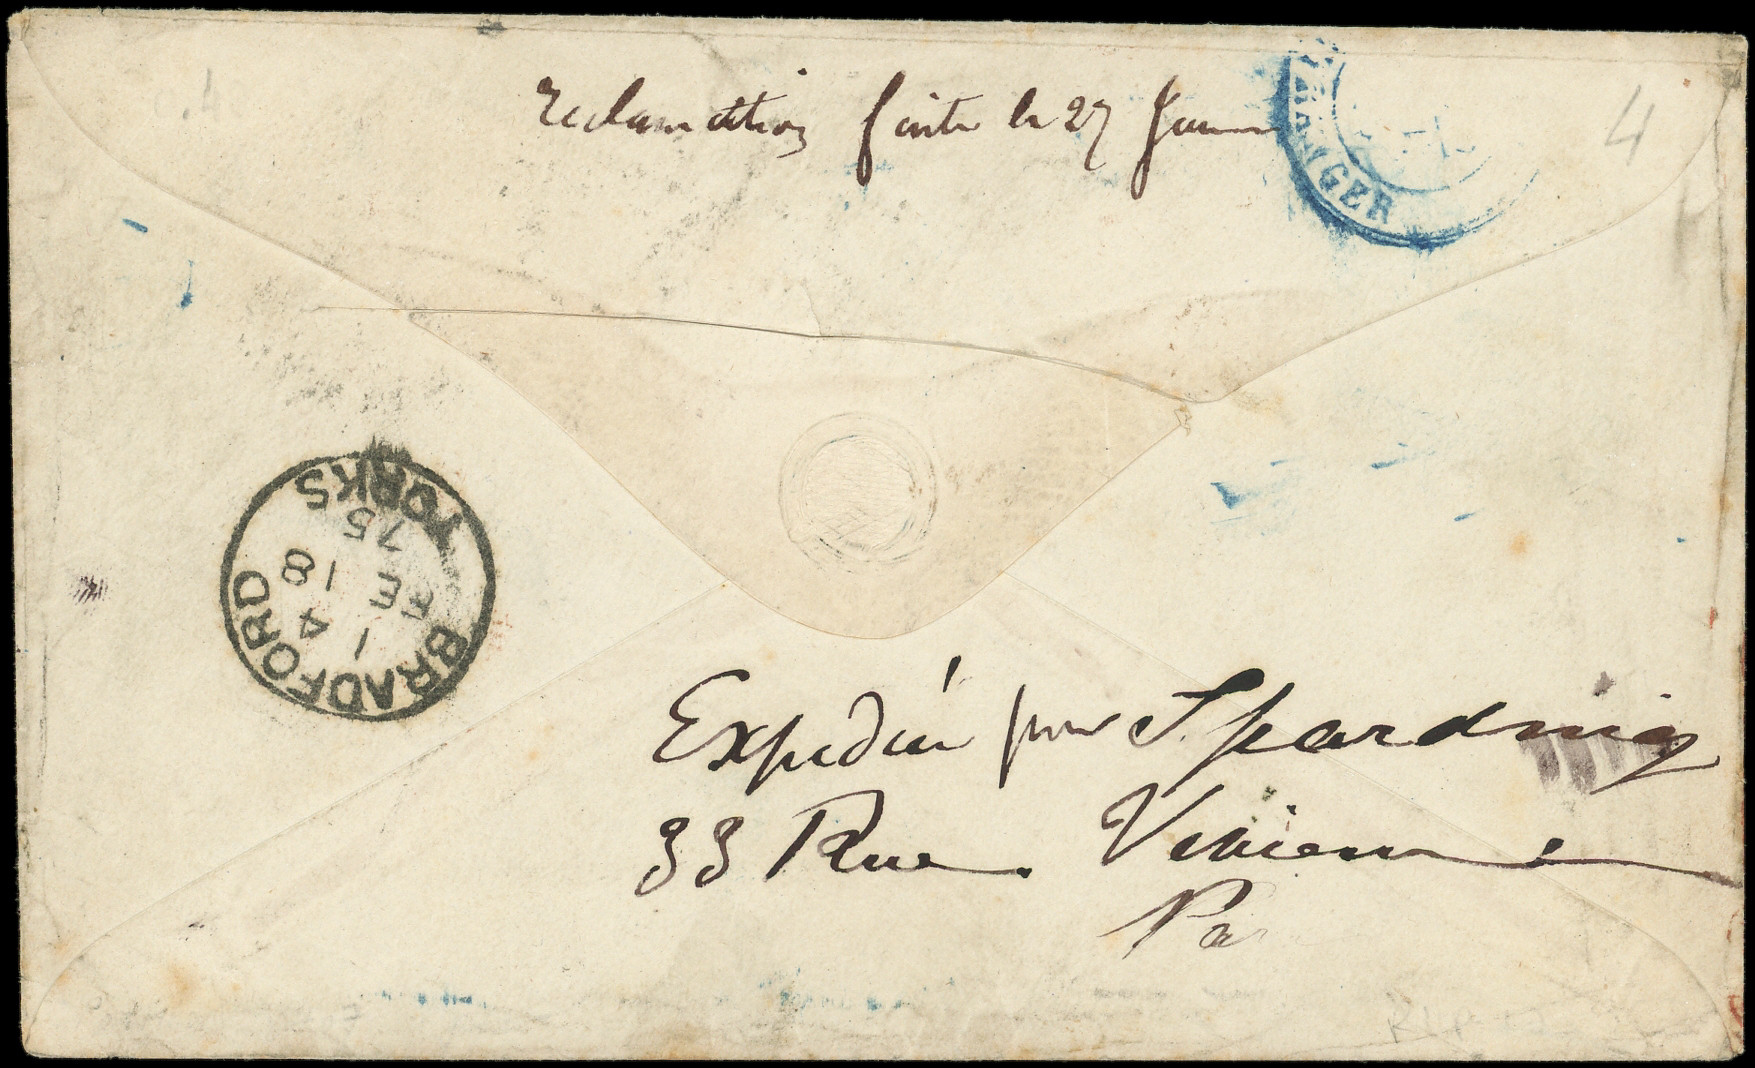 Reclamation faite le 27 Janv
ANGER
4
BRADFORD
YORKS
1 4
FE 18
75
Expédié par
33 Rue Vivienne
Pa